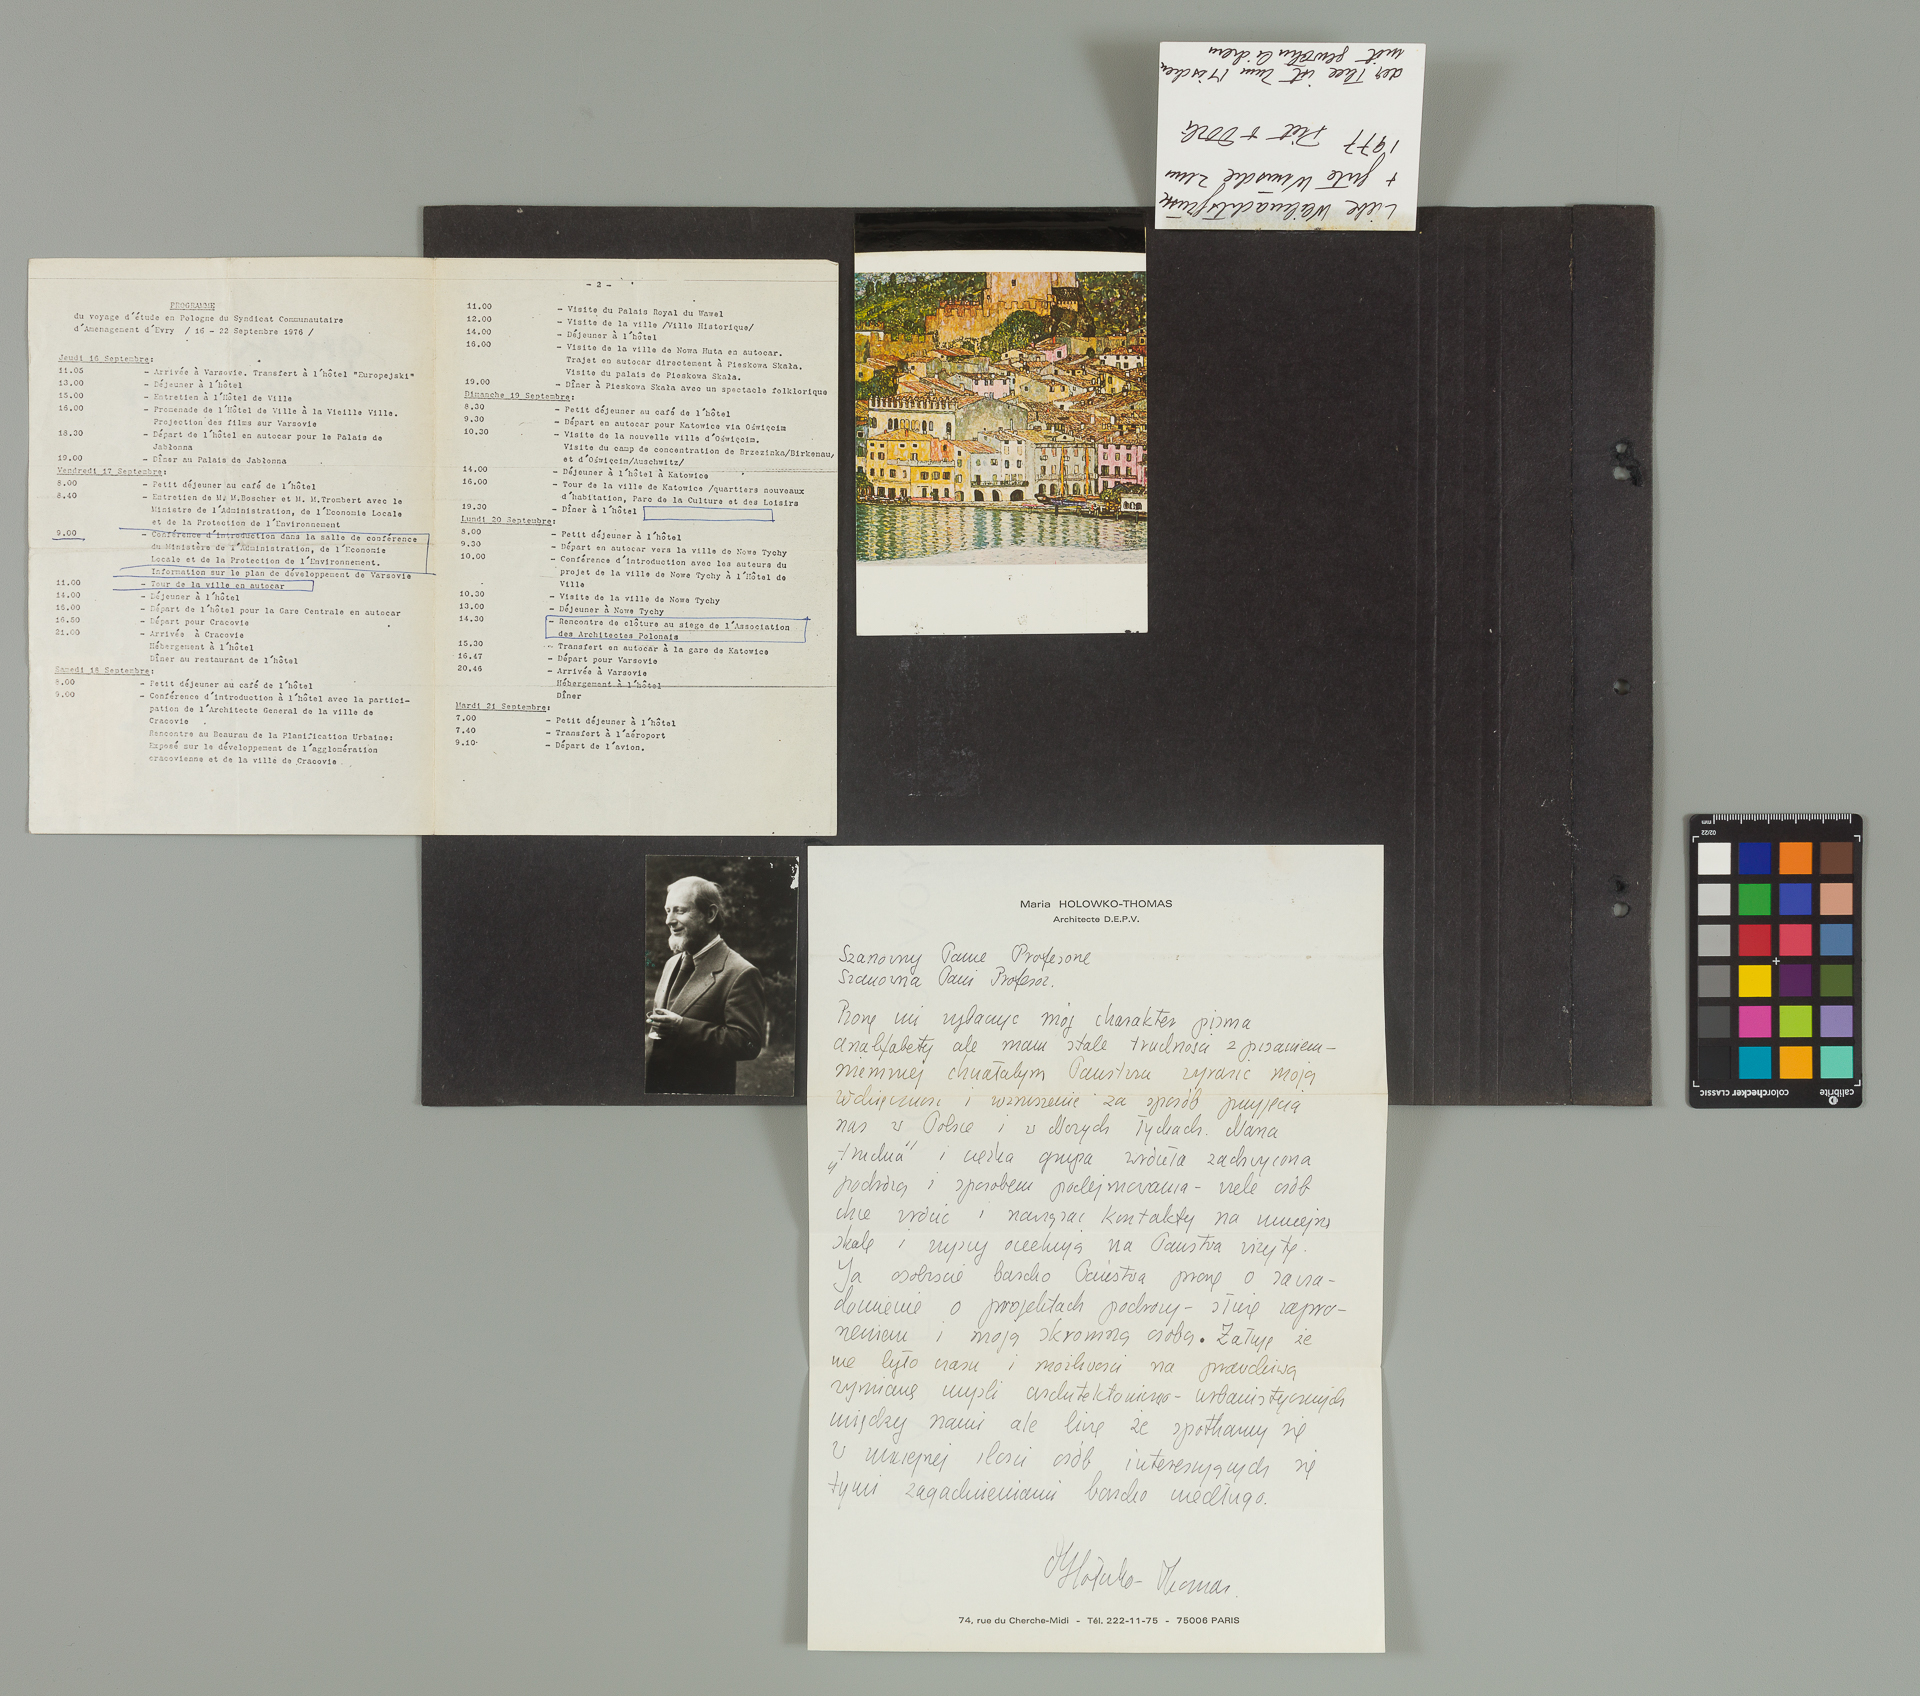 PROGRAMME
du voyage d'étude en Pologne du Syndicat Communautaire
d'Amenagement d'Evry / 16 - 22 Septembre 1976 /
Jeudi 16 Septembre:
11.05 - Arrivée à Varsovie. Transfert à l'hôtel "Europejski"
13.00 - Déjeuner à l'hôtel
15.00 - Entretien à l'Hôtel de Ville
16.00 - Promenade de l'Hôtel de Ville à la Vieille Ville.
Projection des films sur Varsovie
18.30 - Départ de l'hôtel en autocar pour le Palais de
Jabłonna
19.00 - Dîner au Palais de Jabłonna
Vendredi 17 Septembre:
8.00 - Petit déjeuner au café de l'hôtel
8.40 - Entretien de M. M.Boscher et M. M.Trombert avec le
Ministre de l'Administration, de l'Economie Locale
et de la Protection de l'Environnement
9.00 - Conférence d'introduction dans la salle de conférence
du Ministère de l'Administration, de l'Economie
Locale et de la Protection de l'Environnement.
Information sur le plan de développement de Varsovie
11.00 - Tour de la ville en autocar
14.00 - Déjeuner à l'hôtel
16.00 - Départ de l'hôtel pour la Gare Centrale en autocar
16.50 - Départ pour Cracovie
21.00 - Arrivée à Cracovie
Hébergement à l'hôtel
Dîner au restaurant de l'hôtel
Samedi 18 Septembre:
8.00 - Petit déjeuner au café de l'hôtel
9.00 - Conférence d'introduction à l'hôtel avec la partici-
pation de l'Architecte General de la ville de
Cracovie .
Rencontre au Beaurau de la Planification Urbaine:
Exposé sur le développement de l'agglomération
cracovienne et de la ville de Cracovie
- 2 -
11.00 - Visite du Palais Royal du Wawel
12.00 - Visite de la ville /Ville Historique/
14.00 - Déjeuner à l'hôtel
16.00 - Visite de la ville de Nowa Huta en autocar.
Trajet en autocar directement à Pieskowa Skała.
Visite du palais de Pieskowa Skała.
19.00 - Dîner à Pieskowa Skała avec un spectacle folklorique
Dimanche 19 Septembre:
8.30 - Petit déjeuner au café de l'hôtel
9.30 - Départ en autocar pour Katowice via Oświęcim
10.30 - Visite de la nouvelle ville d'Oświęcim.
Visite du camp de concentration de Brzezinka/Birkenau,
et d'Oświęcim/Auschwitz/
14.00 - Déjeuner à l'hôtel à Katowice
16.00 - Tour de la ville de Katowice /quartiers nouveaux
d'habitation, Parc de la Culture et des Loisirs
19.30 - Dîner à l'hôtel
Lundi 20 Septembre:
8.00 - Petit déjeuner à l'hôtel
9.30 - Départ en autocar vers la ville de Nowe Tychy
10.00 - Conférence d'introduction avec les auteurs du
projet de la ville de Nowe Tychy à l'Hôtel de
Ville
10.30 - Visite de la ville de Nowe Tychy
13.00 - Déjeuner à Nowe Tychy
14.30 - Rencontre de clôture au siege de l'Association
des Architectes Polonais
15.30 - Transfert en autocar à la gare de Katowice
16.47 - Départ pour Varsovie
20.46 - Arrivée à Varsovie
Hébergement à l'hôtel
Dîner
Mardi 21 Septembre:
7.00 - Petit déjeuner à l'hôtel
7.40 - Transfert à l'aéroport
9.10 - Départ de l'avion.
Liebe Weihnachtsgrüsse
+ gute Wünsche zum
1977 Piet + Dorli
der Thee ist zum Mischen
mit
Maria HOLOWKO-THOMAS
Architecte D.E.P.V.
Szanowny Panie Profesorze
Szanowna Pani Profesor.
Proszę mi wybaczyć mój charakter pisma
analfabety ale mam stale trudności z pisaniem -
niemniej chciałabym Państwu wyrazić moją
wdzięczność i wzruszenie za sposób przyjęcia
nas w Polsce i w Nowych Tychach. Nasza
"trudna" i ciężka grupa wróciła zachwycona
podróżą i sposobem podejmowania - wiele osób
chce wrócić i nawiązać kontakty na mniejszą
skalę i wszyscy oczekują na Państwa wizytę.
Ja osobiście bardzo Państwa proszę o zawia-
domienie o projektach podróży - służę zapro-
szeniem i moją skromną osobą. Żałuję że
nie było czasu i możliwości na prawdziwą
wymianę myśli architektoniczno - urbanistycznych
między nami ale liczę że spotkamy się
w mniejszej ilości osób interesujących się
tymi zagadnieniami bardzo niedługo.
MHołowko - Thomas.
74, rue du Cherche-Midi - Tél. 222-11-75 - 75006 PARIS
mm
02/22
colorchecker CLASSIC
calibrite